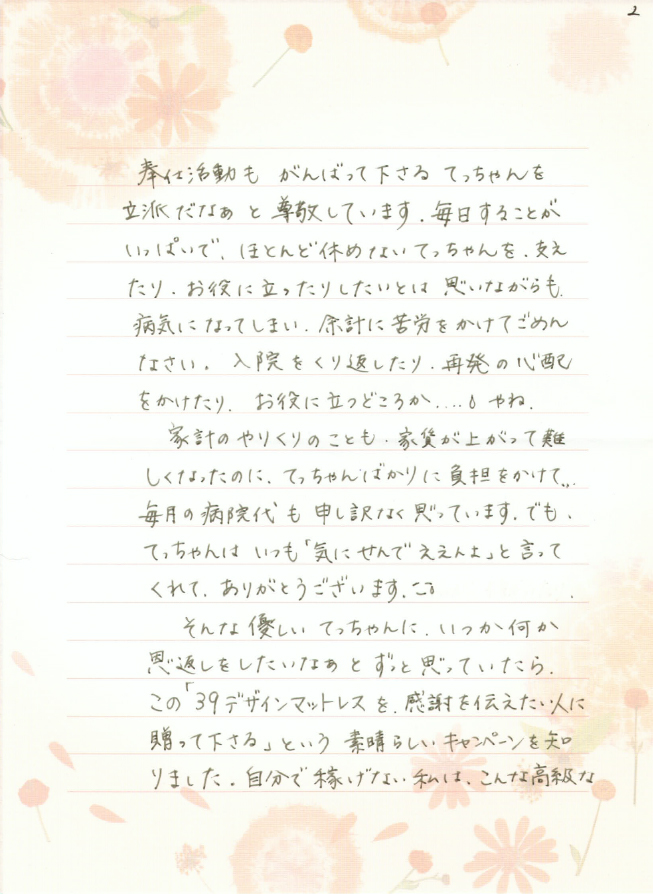 2
奉仕活動も がんばって下さる てっちゃんを
立派だなぁ と 尊敬しています。毎日することが
いっぱいで、ほとんど休めないてっちゃんを、支え
たり、お役に立ったりしたいとは 思いながらも、
病気になってしまい、余計に苦労をかけてごめん
なさい。入院をくり返したり、再発の心配
をかけたり、お役に立つどころか....0やね。
家計のやりくりのことも、家賃が上がって難
しくなったのに、てっちゃんばかりに負担をかけて...
毎月の病院代も申し訳なく思っています。でも、
てっちゃんは いつも「気にせんでええんよ」と言って
くれて、ありがとうございます。
そんな優しい てっちゃんに、いつか何か
恩返しをしたいなぁ と ずっと思っていたら、
この「39デザインマットレスを、感謝を伝えたい人に
贈って下さる」という 素晴らしいキャンペーンを知
りました。自分で稼げない私は、こんな高級な